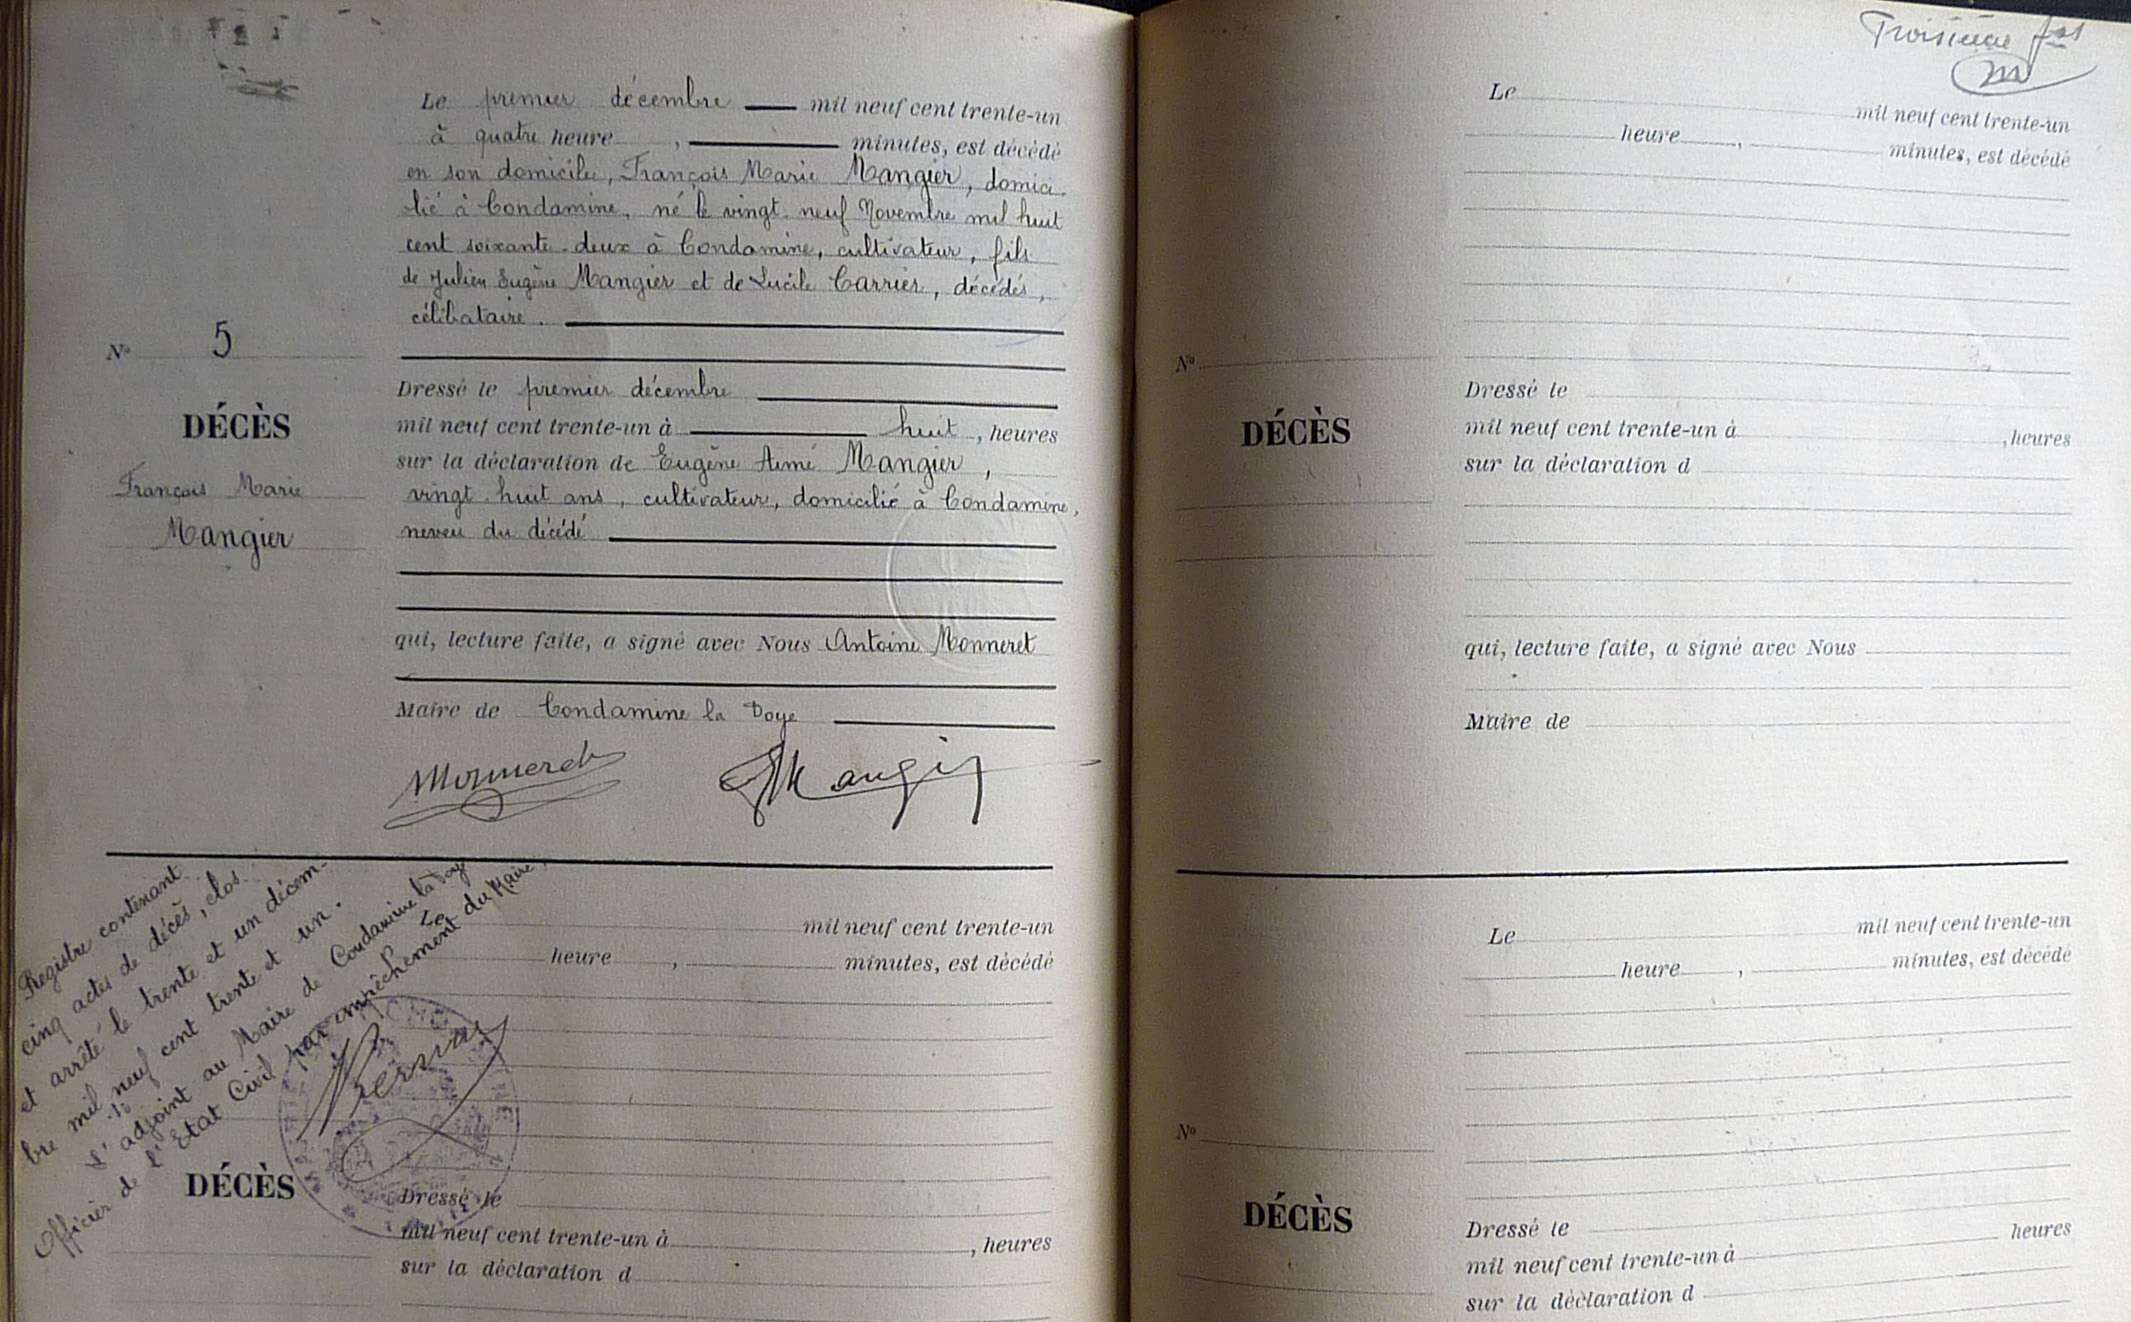 Le premier décembre mil neuf cent trente-un
à quatre heure , minutes, est décédé
en son domicile, François Marie Mangier, domici-
lié à Condamine, né le vingt-neuf Novembre mil huit
cent soixante-deux à Condamine, cultivateur, fils
de Julien Eugène Mangier et de Lucile Carrier, décédés,
célibataire.
N° 5
DÉCÈS
François Marie
Mangier
Dressé le premier décembre
mil neuf cent trente-un à huit, heures
sur la déclaration de Eugène Aimé Mangier,
vingt-huit ans, cultivateur, domicilié à Condamine,
neveu du décédé
qui, lecture faite, a signé avec Nous Antoine Monneret
Maire de Condamine la Doye
Monneret
Mangier
Registre contenant
cinq actes de décès, clos
et arrêté le trente et un décem-
bre mil neuf cent trente et un.
L'adjoint au Maire de Condamine la Doye
Officier de l'Etat Civil par empêchement du Maire.
Le mil neuf cent trente-un
heure , minutes, est décédé
DÉCÈS
Dressé le
mil neuf cent trente-un à , heures
sur la déclaration d
Troisième
Le mil neuf cent trente-un
heure , minutes, est décédé
N°
DÉCÈS
Dressé le
mil neuf cent trente-un à , heures
sur la déclaration d
qui, lecture faite, a signé avec Nous
Maire de
Le mil neuf cent trente-un
heure , minutes, est décédé
N°
DÉCÈS
Dressé le
mil neuf cent trente-un à heures
sur la déclaration d